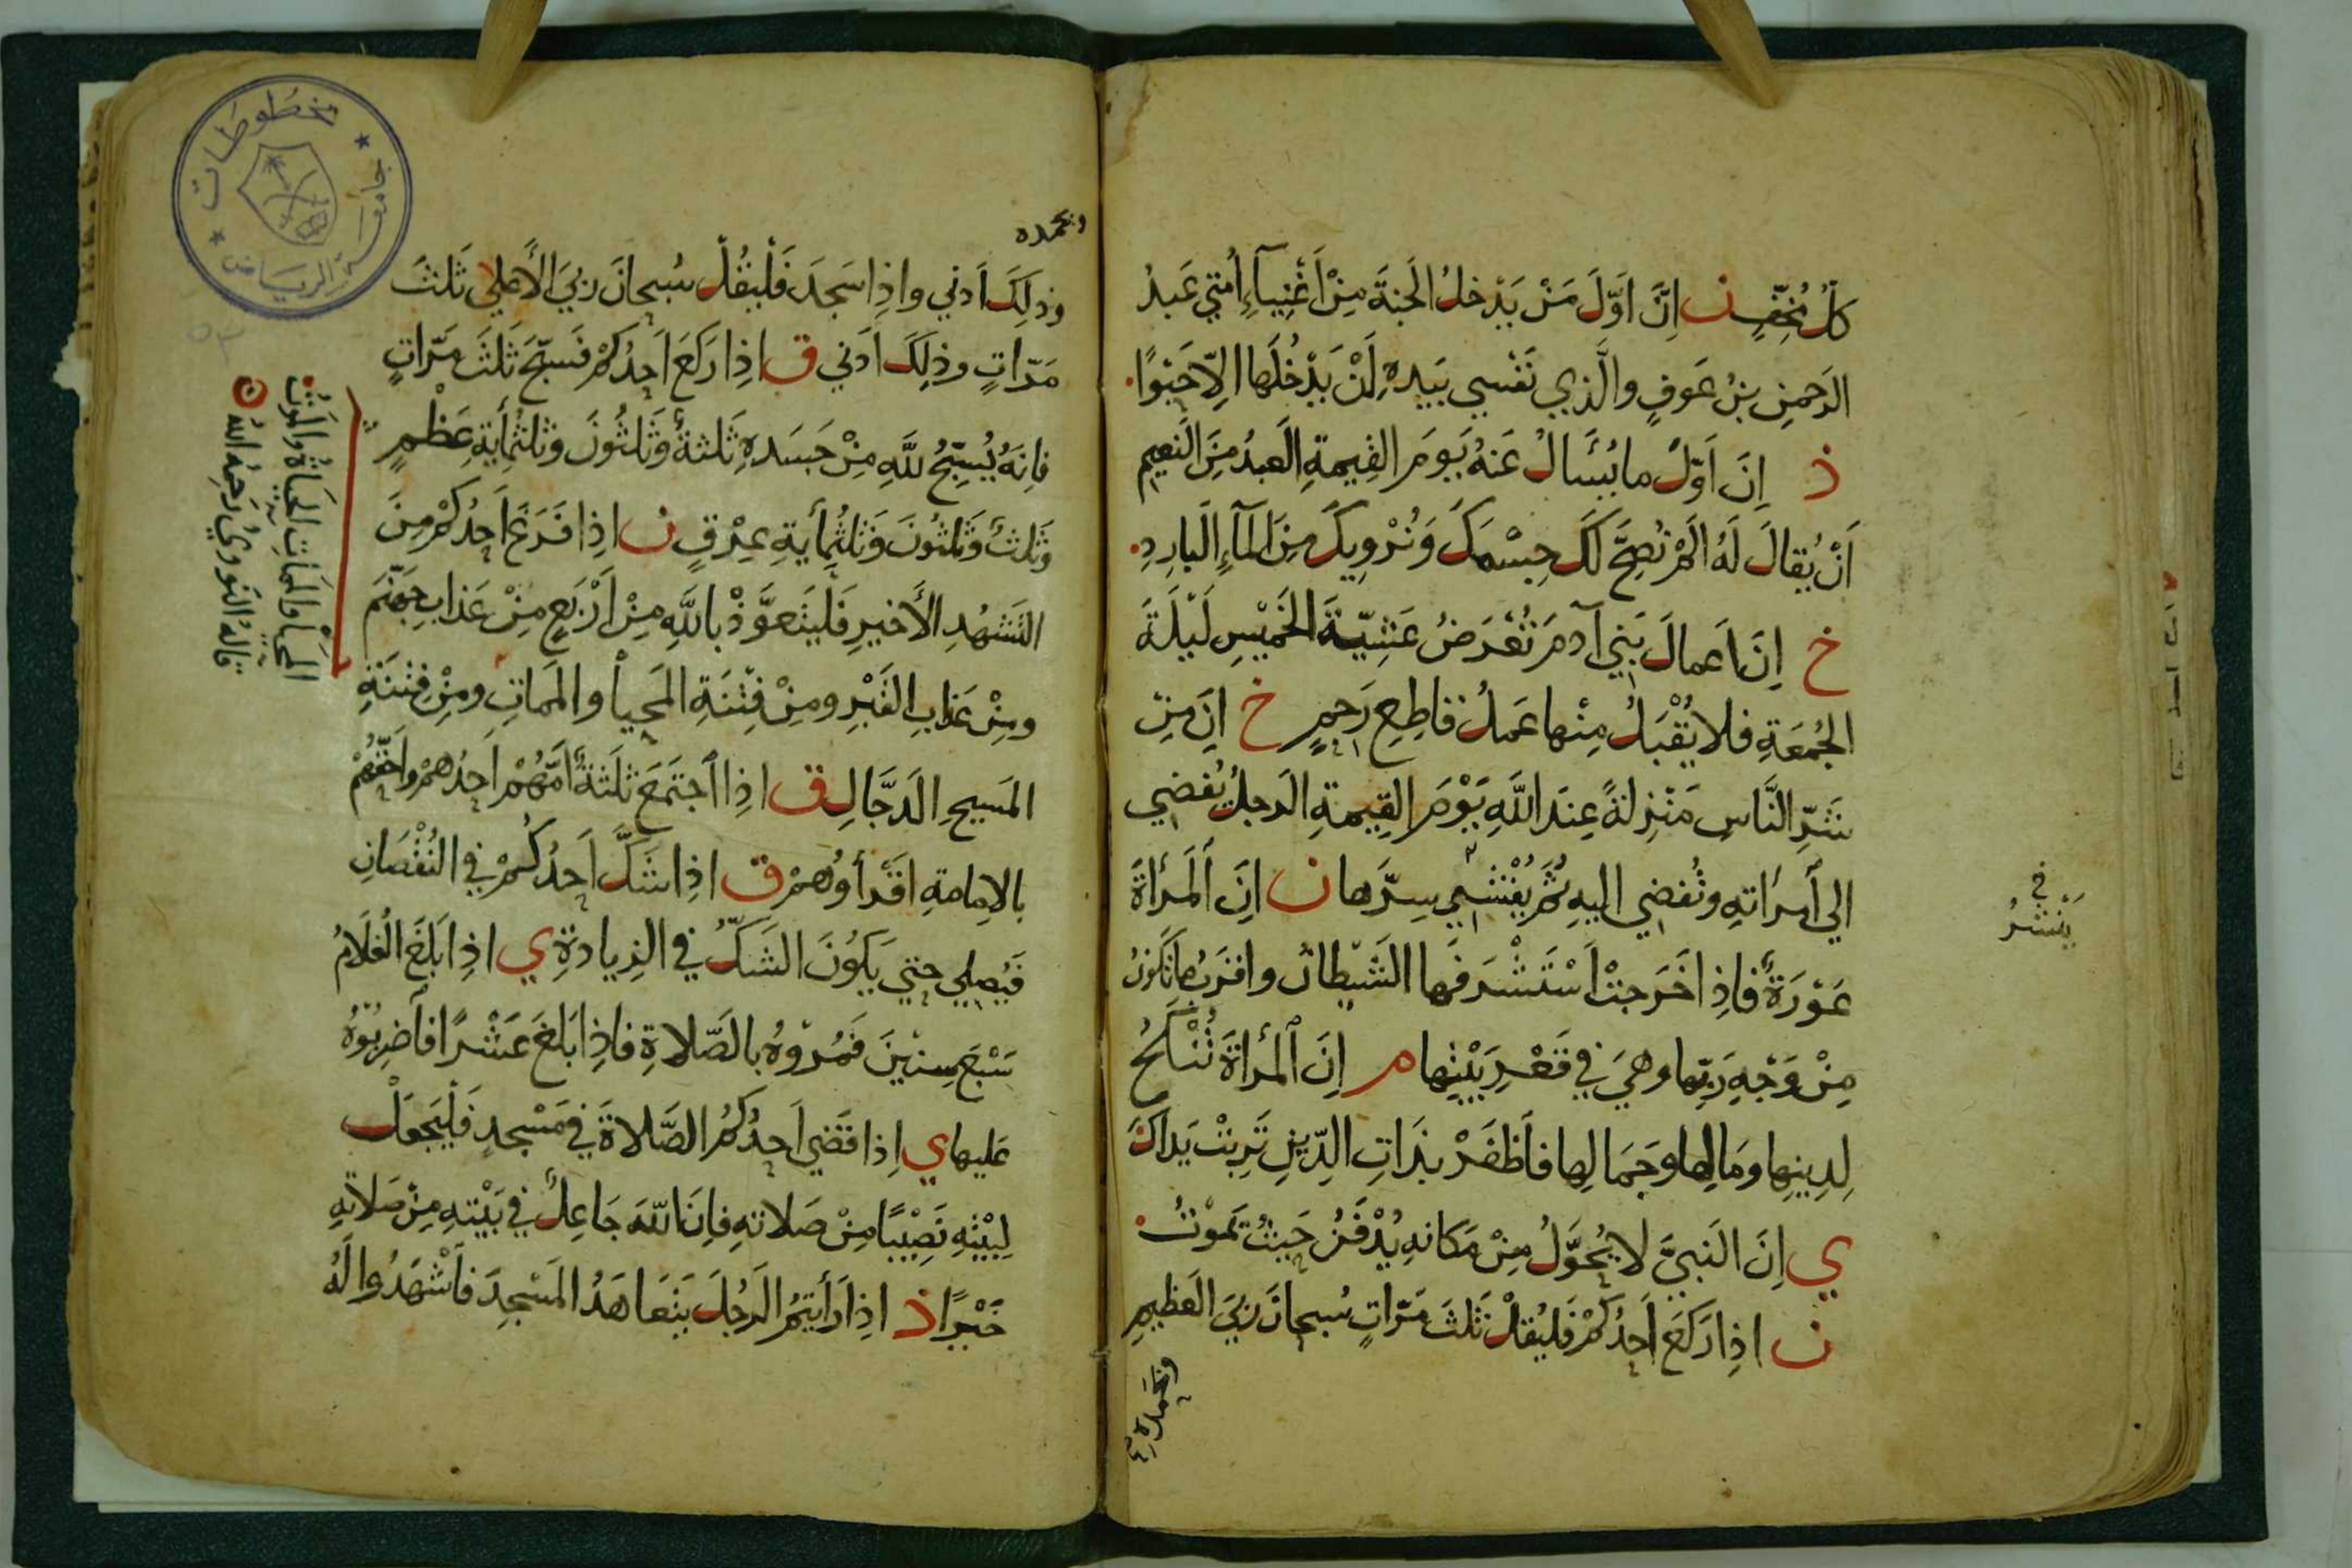 كلُّ مُخِفٍّ ن اِنَّ اَوَّلَ مَنْ يَدْخلُ الجَنةَ مِنْ اَغْنِيآءِ اُمَّتي عَبدُ
الرَحمنِ بنُ عَوفٍ والَّذِي نَفْسي بيَدِهِ لَنْ يَدْخُلَها اِلاّ حَبْوًا
ذ اِنَّ اَوّلَ ما يُسَألُ عَنهُ يَومَ القِيمةِ العَبدُ مِنَ النَعِيمِ
اَنْ يُقالَ لَهُ اَلمْ نُصِحَّ لَكَ جِسْمَكَ وَنُرْوِيكَ مِنَ المَآءِ البَارِدِ
خ اِنَّ اَعمالَ بَني آدمَ تُعْرَضُ عَشِيّةَ الخَمِيْسِ لَيْلَةَ
الجُمعَةِ فلا يُقْبَلُ مِنْها عَملُ قاطِعِ رَحِمٍ خ اِنَّ مِن
شَرِّ النَّاسِ مَنْزِلةً عِندَ اللَّهِ يَوْمَ القِيمةِ الرَجلُ يُفضي
الي اَمرَاتهِ وتُفضي اليهِ ثُمَّ يُفْشي سِرَّها ن اِنَّ المَرْأةَ
عَوْرَةٌ فاِذِا خَرَجتْ اَسْتَشْرَفَها الشَيْطانُ واقرَبُ ما تَكونُ
مِنْ وَجْهِ رَبّها وهيَ في قَعْرِ بَيْتِها م اِنَّ المرأةَ تُنْكَحُ
لِدِينِها ومَالِها وجَمَالِها فاَظفَرْ بذَاتِ الدِّينِ تَرِبتْ يَداكَ
ي اِنَّ النَبيَّ لا يُحوَّلُ مِنْ مَكانهِ يُدْفَنُ حَيثُ يَموْتُ
ن اذِا رَكعَ اَحدُكمْ فَليُقلْ ثَلثَ مَرّاتٍ سُبحانَ رَبّيَ العَظيمِ
وبحَمدِهِ
في
يَنْشرُ
وبحَمده
وذلِكَ اَدني واذِا سَجدَ فَلْيقُلْ سُبحانَ رَبّيَ الأعلي ثَلثَ
مَرّاتٍ وذلِكَ اَدني ق اذِا رَكعَ اَحدُكمْ فَسبّحَ ثَلثَ مَرّاتٍ
فاِنهُ يُسبّحُ للَّهِ مِنْ جَسَدِهِ ثَلثةٌ وَثَلثُونَ وثَلثُمِأيةِ عَظْمٍ
وَثَلثٌ وَثَلثونَ وَثلثُمِأيةِ عِرْقٍ ن اذِا فَرَغَ اَحدُكمْ مِنَ
التَشهُدِ الأَخيرِ فَليَتَعوَّذْ باللَّهِ مِنْ اَرْبَعٍ مِنْ عَذابِ جهَنّمَ
ومِنْ عَذابِ القَبْرِ ومِنْ فِتْنَةِ المَحيا والمَماتِ ومِنْ فِتنَةِ
المَسيحِ الدَجَّالِ ق اذِا اَجتَمَعَ ثَلَثةٌ اَمَّهُمْ اَحدُهمْ واَحَقّهُمْ
بالاِمامةِ اقْرأوُهمْ ق اذِا شَكَّ اَحدُكُمْ في النُقْصَانِ
فَيُصلي حتي يَكُونَ الشَكُّ في الزِيادةِ ي اذِا بَلَغَ الغُلَامُ
سَبْعَ سِنيْنَ فَمُرْوهُ بالصّلاةِ فاذِا بَلغَ عَشْرًا فاَضرِبُوْهُ
عَليها ي اِذا قَضي اَحدُكمُ الصَّلاةَ في مَسْجِدٍ فَلْيَجعَلْ
لِبيْتهِ نَصِيْبًا مِنْ صَلاتهِ فاِنَّ اللّهَ جَاعِلٌ في بَيْتهِ مِنْ صَلاتهِ
خَيْرًا ذ اذِا رَأيتمُ الرَجُلَ يَتَعاهَدُ المَسْجِدَ فاَشْهَدُوا لَهُ
المَحْيَا والمَمات الحَيَاةُ والمَوتُ
قالهُ النَووِيُّ رَحِمهُ اللهُ
مخطوطات
جامعة الرياض